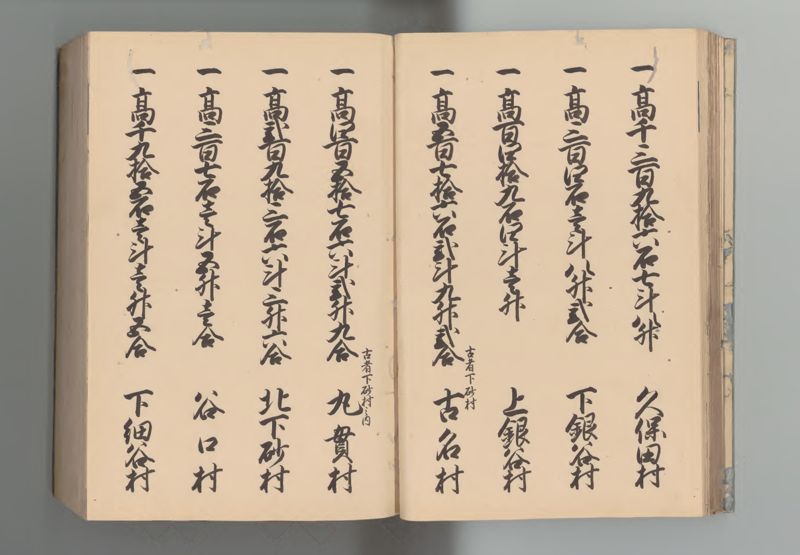 一 髙千三百九拾六石七斗八升 久保田村
一 髙三百四石壱斗八升弐合 下銀谷村
一 髙百四拾九石四斗壱升 上銀谷村
古者下砂村
一 髙五百七拾六石弐斗九升弐合 古名村
古者下砂村之内
一 髙四百五拾七石六斗弐升九合 丸貫村
一 髙弐百九拾三石六斗三升六合 北下砂村
一 髙三百七石壱斗五升壱合 谷口村
一 髙千九拾五石壱斗壱升五合 下細谷村